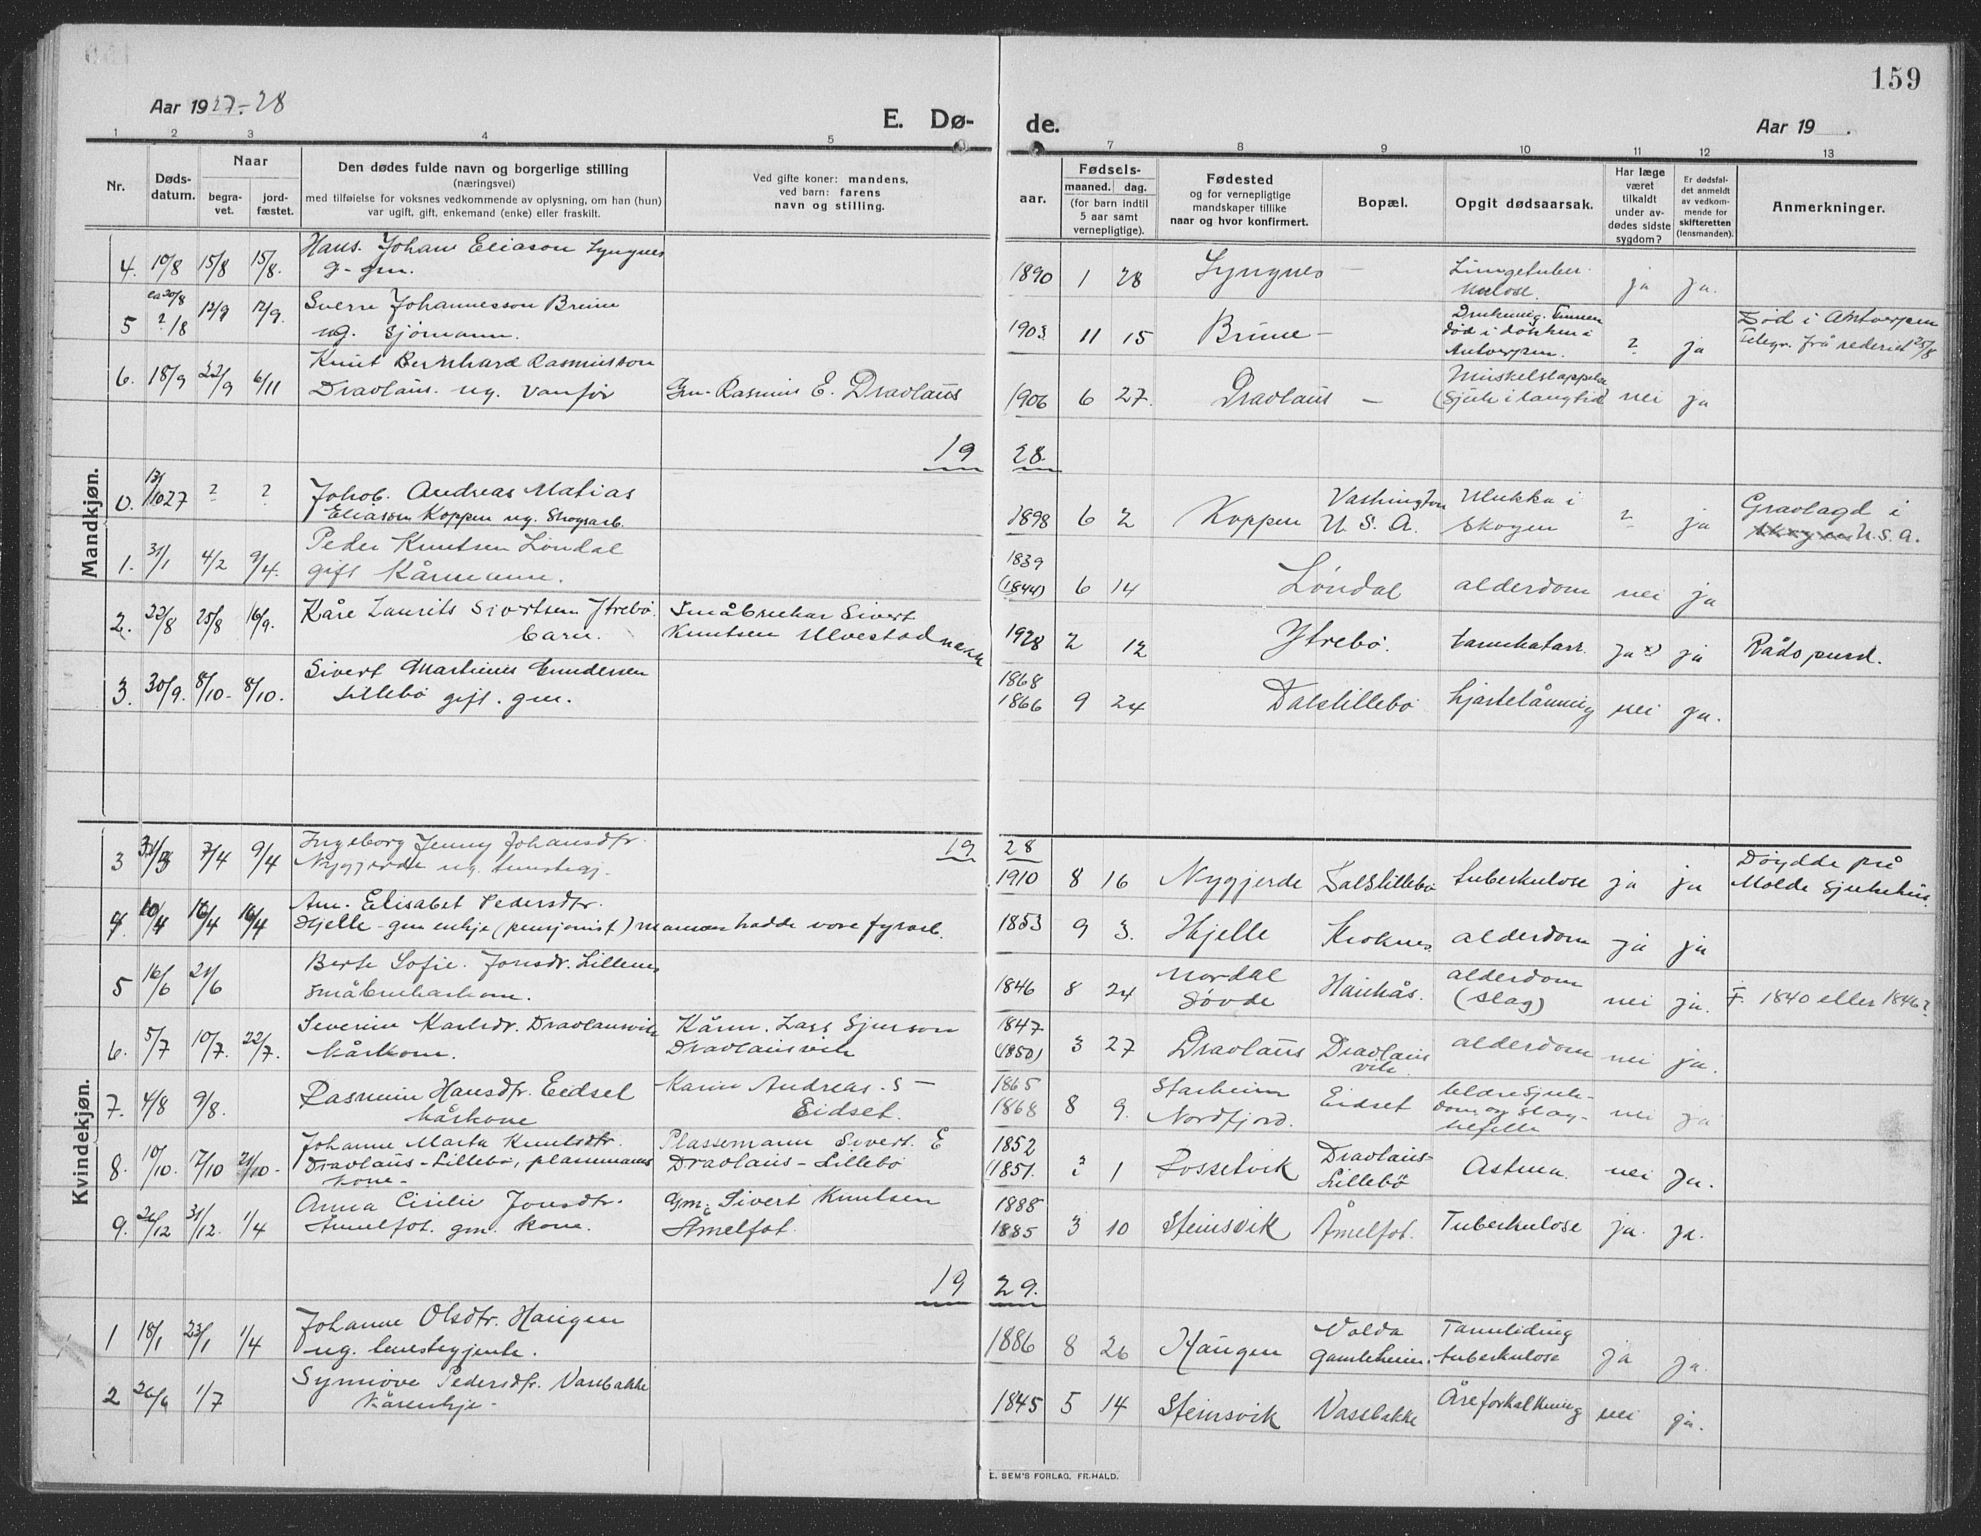 159
Aar 1927-28
E. Dø-
de.
Aar 19 .
1 2 3 4 5
7 8 9 10 11 12 13
Nr.
Døds-
datum.
Naar
begra-
vet.
jord-
fæstet.
Den dødes fulde navn og borgerlige stilling
(næringsvei)
med tilføielse for voksnes vedkommende av oplysning, om han (hun)
var ugift, gift, enkemand (enke) eller fraskilt.
Ved gifte koner: mandens,
ved barn: farens
navn og stilling.
aar.
Fødsels-
maaned. dag.
(for barn indtil
5 aar samt
vernepligtige).
Fødested
og for vernepligtige
mandskaper tillike
naar og hvor konfirmert.
Bopæl.
Opgit dødsaarsak.
Har læge
været
tilkaldt
under av-
dødes sidste
sygdom?
Er dødsfal-
det anmeldt
av vedkom-
mende for
skifteretten
(lensmanden).
Anmerkninger.
Mandkjøn.
4. 10/8 15/8 15/8. Hans Johan Eliason Syngnes
g. gm.
1890 1 28 Syngnes - Lungetuber-
kulose. ja ja.
5 ca 20/8
?/8 12/9 12/9. Sverre Johannesson Brune
ug. sjømann.
1903 11 15 Brune - Drukning. Funnen
død i dokken i
Antwerpen. ? ja
Død i Antwerpen
Telegr. frå rederiet 25/8
6. 18/9 22/9 6/11 Knut Bernhard Rasmusson
Dravlaus. ug. vanfør
Gm. Rasmus E. Dravlaus
1906 6 27. Dravlaus - Muskelslappelse
(Sjuk i lang tid) nei ja
19 28
0. 13/10 27 ? ? Jakob Andreas Matias
Eliason Koppen ug. Skogsarb.
1898 6 2 Koppen Vashington
U. S. A. Ulukka i
skogen ? ja
Gravlagd i
U.S.A.
1. 31/1 4/2 9/4. Peder Knutsen Løndal
gift kårmann.
1839
(1844) 6 14 Løndal alderdom nei ja
2. 22/8 25/8 16/9. Kåre Laurits Sivertsen Ytrebø.
barn.
Småbrukar Sivert
Knutsen Ulvestad
1928 2 12 Ytrebø. tarmkatarr. Ja x) ja
3. 30/9. 8/10- 8/10. Sivert Martinus Gundersen
Lillebø gift. gm.
1868
1866 9 24 Dalslillebø hjartelåming nei ja.
Kvindekjøn.
19 28
3 31/3 7/4 9/4 Ingeborg Jenny Johansdtr.
Nygjerde ug. tenestegj.
1910 8 16 Nygjerde Dalslillebø tuberkulose ja ja
Døydde på
Molde Sjukehus.
4. 10/4 16/4 16/4 An. Elisabet Pedersdtr.
Hjelle - gm enkje (pensjonist) mannen hadde vore fyrarb.
1853 9 3. Hjelle Kroknes alderdom ja ja
5 16/6 21/6 Berte Sofie Jonsdr. Lillenes
småbrukarkone.
1846 8 24 Nordal
Søvde Haukås. alderdom
(slag) nei ja.
F. 1840 eller 1846?
6. 5/7 10/7. 22/7. Severine Karlsdr. Dravlausvik
kårkone.
Kårm. Lars Sjurson
Dravlausvik
1847
(1850) 3 27 Dravlaus Dravlaus
vik. alderdom nei ja.
7. 4/8 9/8. Rasmine Hansdtr. Eidset
kårkone
Karm Andreas. S -
Eidset.
1865
1868 8 9. Starheim
Nordfjord. Eidset
nei ja
8. 10/10. 17/10 21/10- Johanne Marta Knutsdtr.
Dravlaus - Lillebø, plassmanns
kone -
Plassemann Sivert E
Dravlaus - Lillebø
1852
(1851. ? 1 Rossetvik Dravlaus-
Lillebø Astma. nei ja.
9. 26/12 31/12. 1/4 Anna Cisilie Jonsdtr.
Åmelfot. gm. kone.
Gm. Sivert Knutsen
Åmelfot.
1888
1885 3 10 Steinsvik Åmelfot. Tuberkulose ja. ja.
19 29.
1 18/1 23/1 1/4 Johanne Olsdtr. Haugen
ug. tenestegjente.
1886 8 26 Haugen Volda
Gamleheim. Tarmliding
tuberkulose ja ja.
2 26/6 1/7 Synnøve Pedersdtr. Vassbakke
kårenkje -
1845 5 14 Steinsvik Vassbakke Åreforkalkning nei ja.
E. SEM'S FORLAG, FR.HALD.